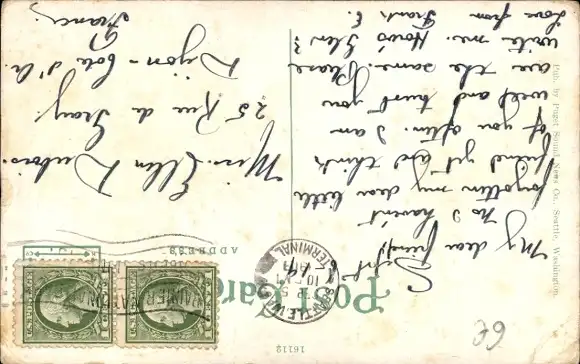 Post Card
ADDRESS
Sept 14
My dear friend:
No I havent
forgotten my dear little
friend yet and think
of you often. I am
well and trust you
are the same. Please
write me. How's Glen?
Love from
Frank E.
Miss. Ellen Dubois.
25 Rue de Gray
Dijon - Cote d'Or
France
Pub. by Puget Sound News Co., Seattle, Washington.
SEATTLE
TERMINAL
16112